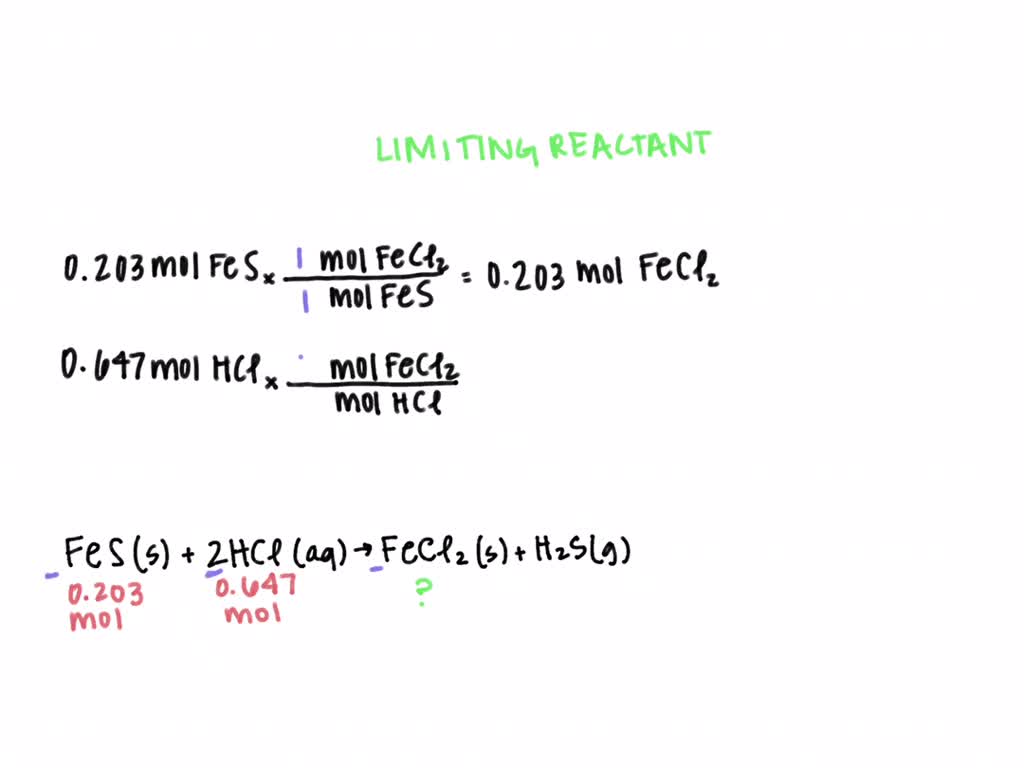 LIMITING REACTANT
0.203 mol FeS x 1 mol FeCl₂ / 1 mol FeS = 0.203 mol FeCl₂
0.647 mol HCl x mol FeCl₂ / mol HCl
FeS (s) + 2HCl (aq) → FeCl₂ (s) + H₂S (g)
0.203 mol 0.647 mol ?